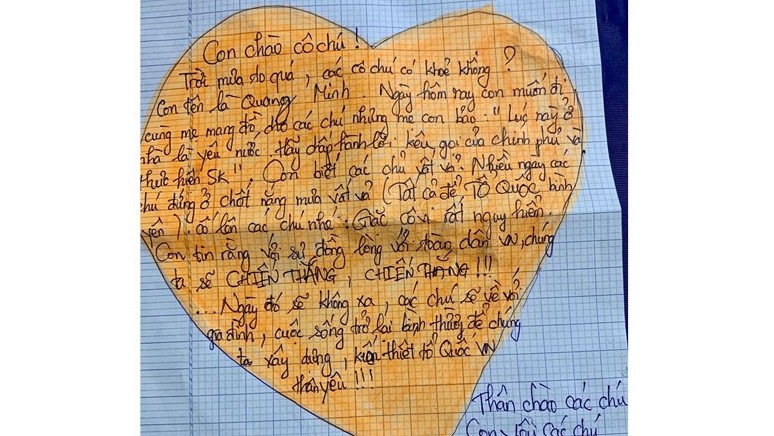 Con chào cô chú !
Trời mưa to quá, các cô chú có khoẻ không ?
Con tên là Quang Minh Ngày hôm nay con muốn đi
cùng mẹ mang đồ cho các chú nhưng mẹ con bảo : "Lúc này ở
nhà là yêu nước. Hãy đáp lời kêu gọi của chính phủ và
thực hiện 5K". Con biết các chú vất vả. Nhiều ngày các
chú đứng ở chốt nắng mưa vất vả (Tất cả để TỔ QUỐC bình
yên). Cố lên các chú nhé : Giặc cô vi rất nguy hiểm.
Con tin rằng với sự đồng lòng với toàn dân VN, chúng
ta sẽ CHIẾN THẮNG, CHIẾN THẮNG !!!
...Ngày đó sẽ không xa, các chú sẽ về với
gia đình, cuộc sống trở lại bình thường để chúng
ta xây dựng, kiến thiết tổ Quốc VN
thân yêu !!!
Thân chào các chú
Con yêu các chú